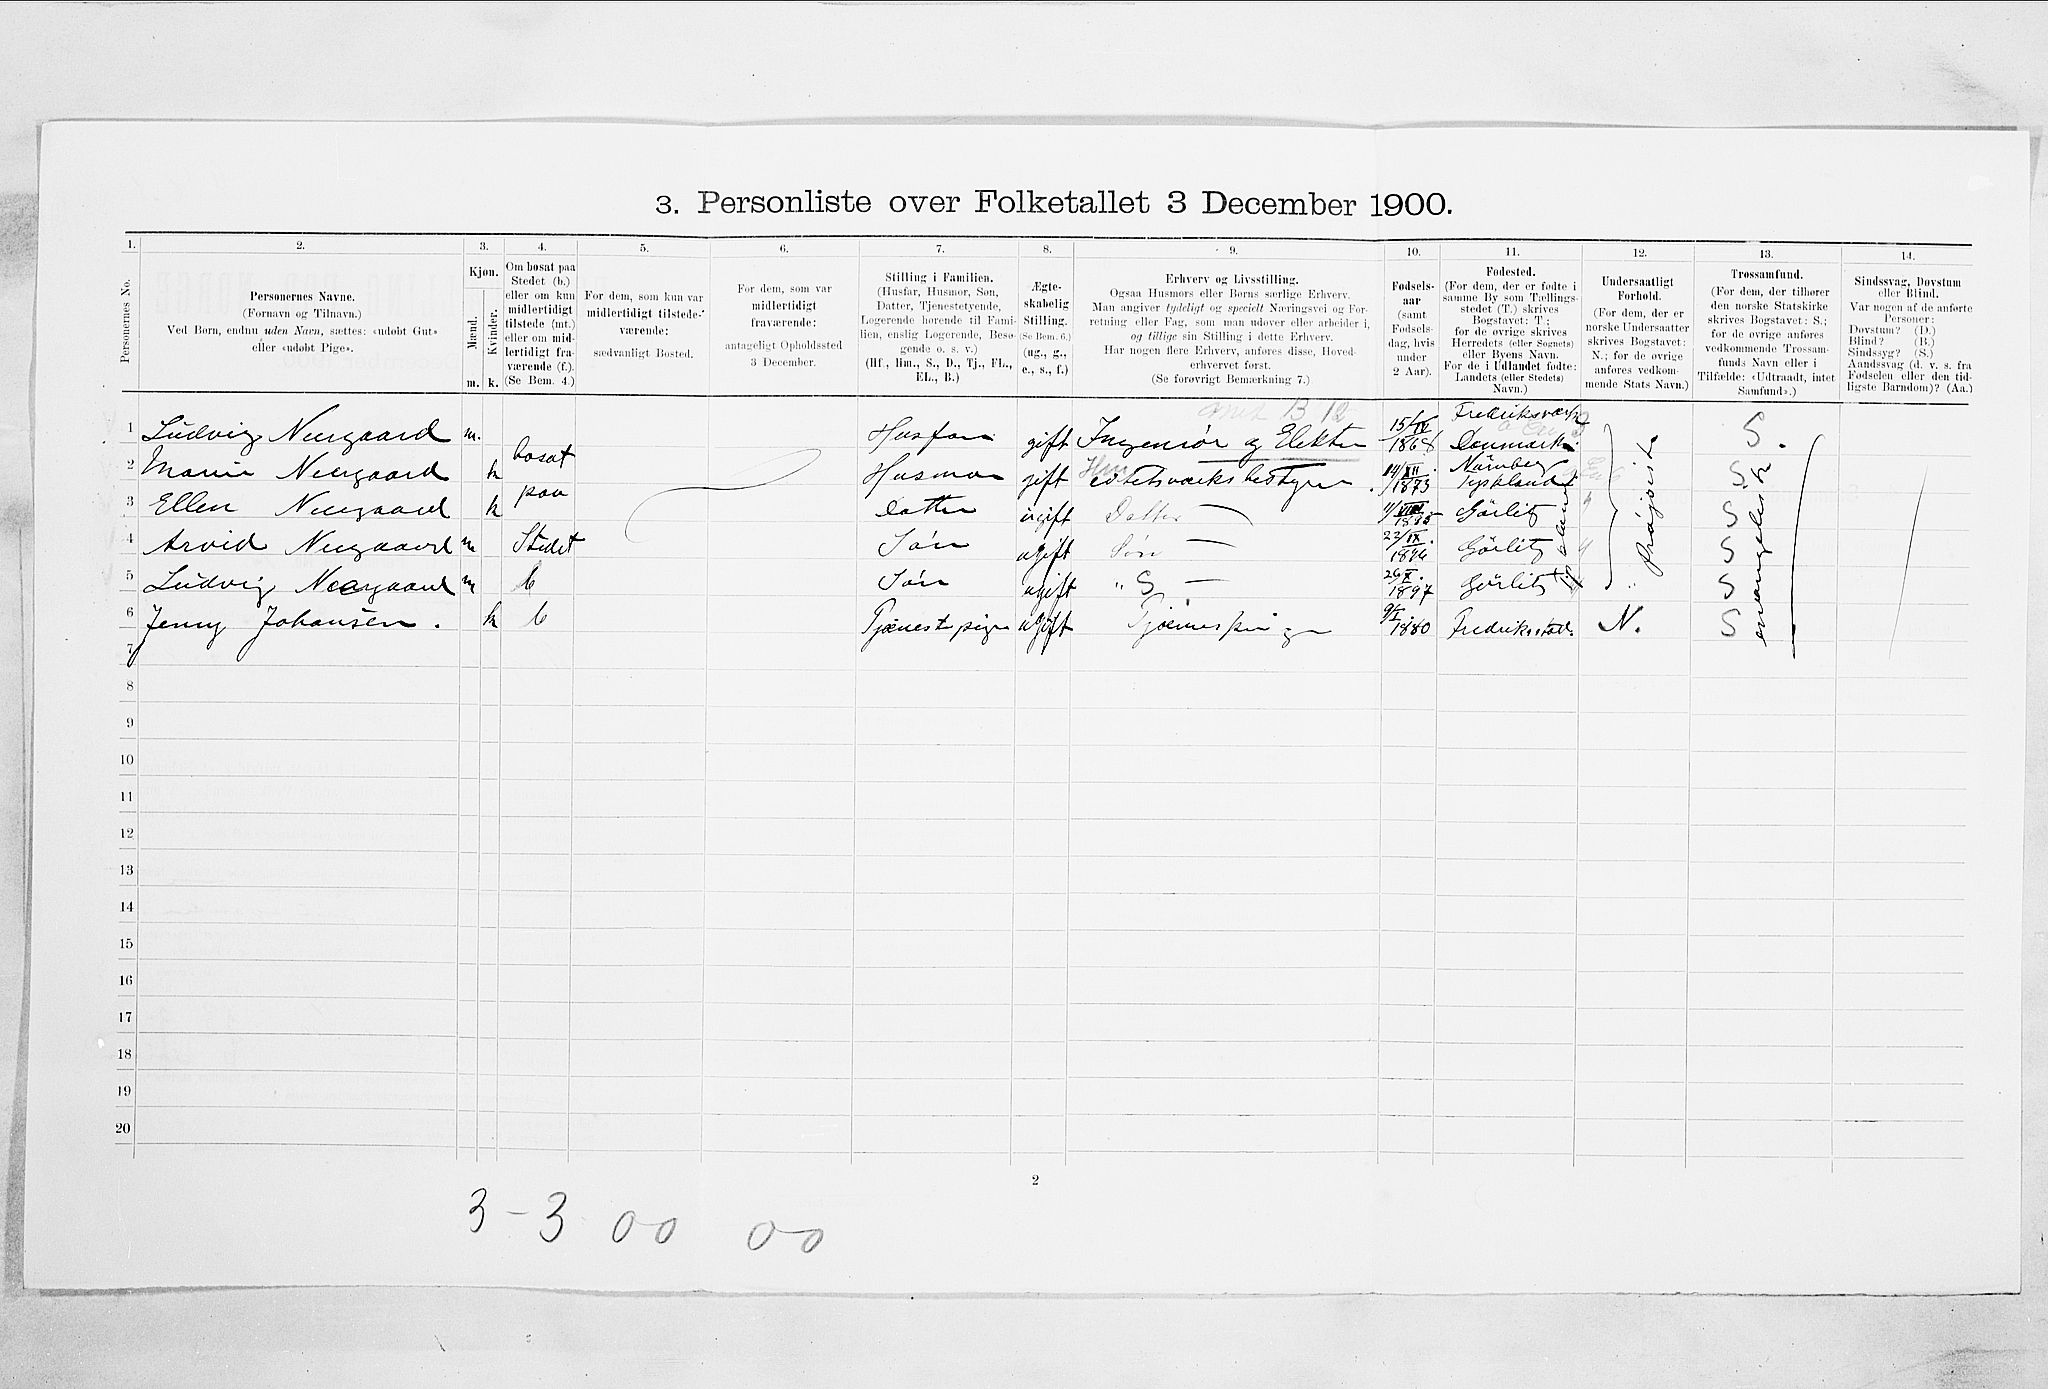 3. Personliste over Folketallet 3 December 1900.
1. 2. 3. 4. 5. 6. 7. 8. 9. 10. 11. 12. 13. 14.
Personernes No.
Personernes Navne.
(Fornavn og Tilnavn.)
Ved Børn, endnu uden Navn, sættes: «udøbt Gut»
eller «udøbt Pige».
Kjøn.
Mænd. Kvinder.
m. k.
Om bosat paa
Stedet (b.)
eller om kun
midlertidigt
tilstede (mt.)
eller om mid-
lertidigt fra-
værende (f.).
(Se Bem. 4.)
For dem, som kun var
midlertidigt tilstede-
værende:
sædvanligt Bosted.
For dem, som var
midlertidigt
fraværende:
antageligt Opholdssted
3 December.
Stilling i Familien.
(Husfar, Husmor, Søn,
Datter, Tjenestetyende,
Logerende hørende til Fami-
lien, enslig Logerende, Besø-
gende o. s. v.)
(Hf., Hm., S., D., Tj., FL.,
EL., B.)
Ægte-
skabelig
Stilling.
(Se Bem. 6.)
(ug., g.,
e., s., f.)
Erhverv og Livsstilling.
Ogsaa Husmors eller Børns særlige Erhverv.
Man angiver tydeligt og specielt Næringsvei og For-
retning eller Fag, som man udøver eller arbeider i,
og tillige sin Stilling i dette Erhverv.
Har nogen flere Erhverv, anføres disse, Hoved-
erhvervet først.
(Se forøvrigt Bemærkning 7.)
Fødsels-
aar
(samt
Fødsels-
dag, hvis
under
2 Aar).
Fødested.
(For dem, der er fødte i
samme By som Tællings-
stedet (T.) skrives
Bogstavet: T;
for de øvrige skrives
Herredets (eller Sognets)
eller Byens Navn.
For de i Udlandet fødte:
Landets (eller Stedets)
Navn.)
Undersaatligt
Forhold.
(For dem, der er
norske Undersaatter
skrives Bogstavet:
N.; for de øvrige
anføres vedkom-
mende Stats Navn.)
Trossamfund.
(For dem, der tilhører
den norske Statskirke
skrives Bogstavet: S.;
for de øvrige anføres
vedkommende Trossam-
funds Navn eller i
Tilfælde: «Udtraadt, intet
Samfund».)
Sindssvag, Døvstum
eller Blind.
Var nogen af de anførte
Personer:
Døvstum? (D.)
Blind? (B.)
Sindssyg? (S.)
Aandssvag (d. v. s. fra
Fødselen eller den tid-
ligste Barndom)? (Aa.)
B 12
1 Ludvig Neergaard m. bosat Husfar gift Ingeniør og Elektri 15/IV 1868 Fredriksværk Danmark. S.
2 Marie Neergaard k paa Husmor gift citetsværksbestyrer 14/XII 1873 Nürnberg Tyskland S
3 Ellen Neergaard k Datter ugift Datter — 1/VIII 1895 Görlitz S
4 Arvid Neergaard m Stedet Søn ugift Søn — 22/IX 1896 Görlitz S
5 Ludvig Neergaard m b Søn ugift " S — 26/X 1897 Görlitz S
6 Jenny Johansen. k b Tjenestepige ugift Tjenestepige 9/I 1880 Fredriksstad. N. S
evangelisk
7
8
9
10
11
12
13
14
15
16
17
18
19
20
2
3 - 3 00 00